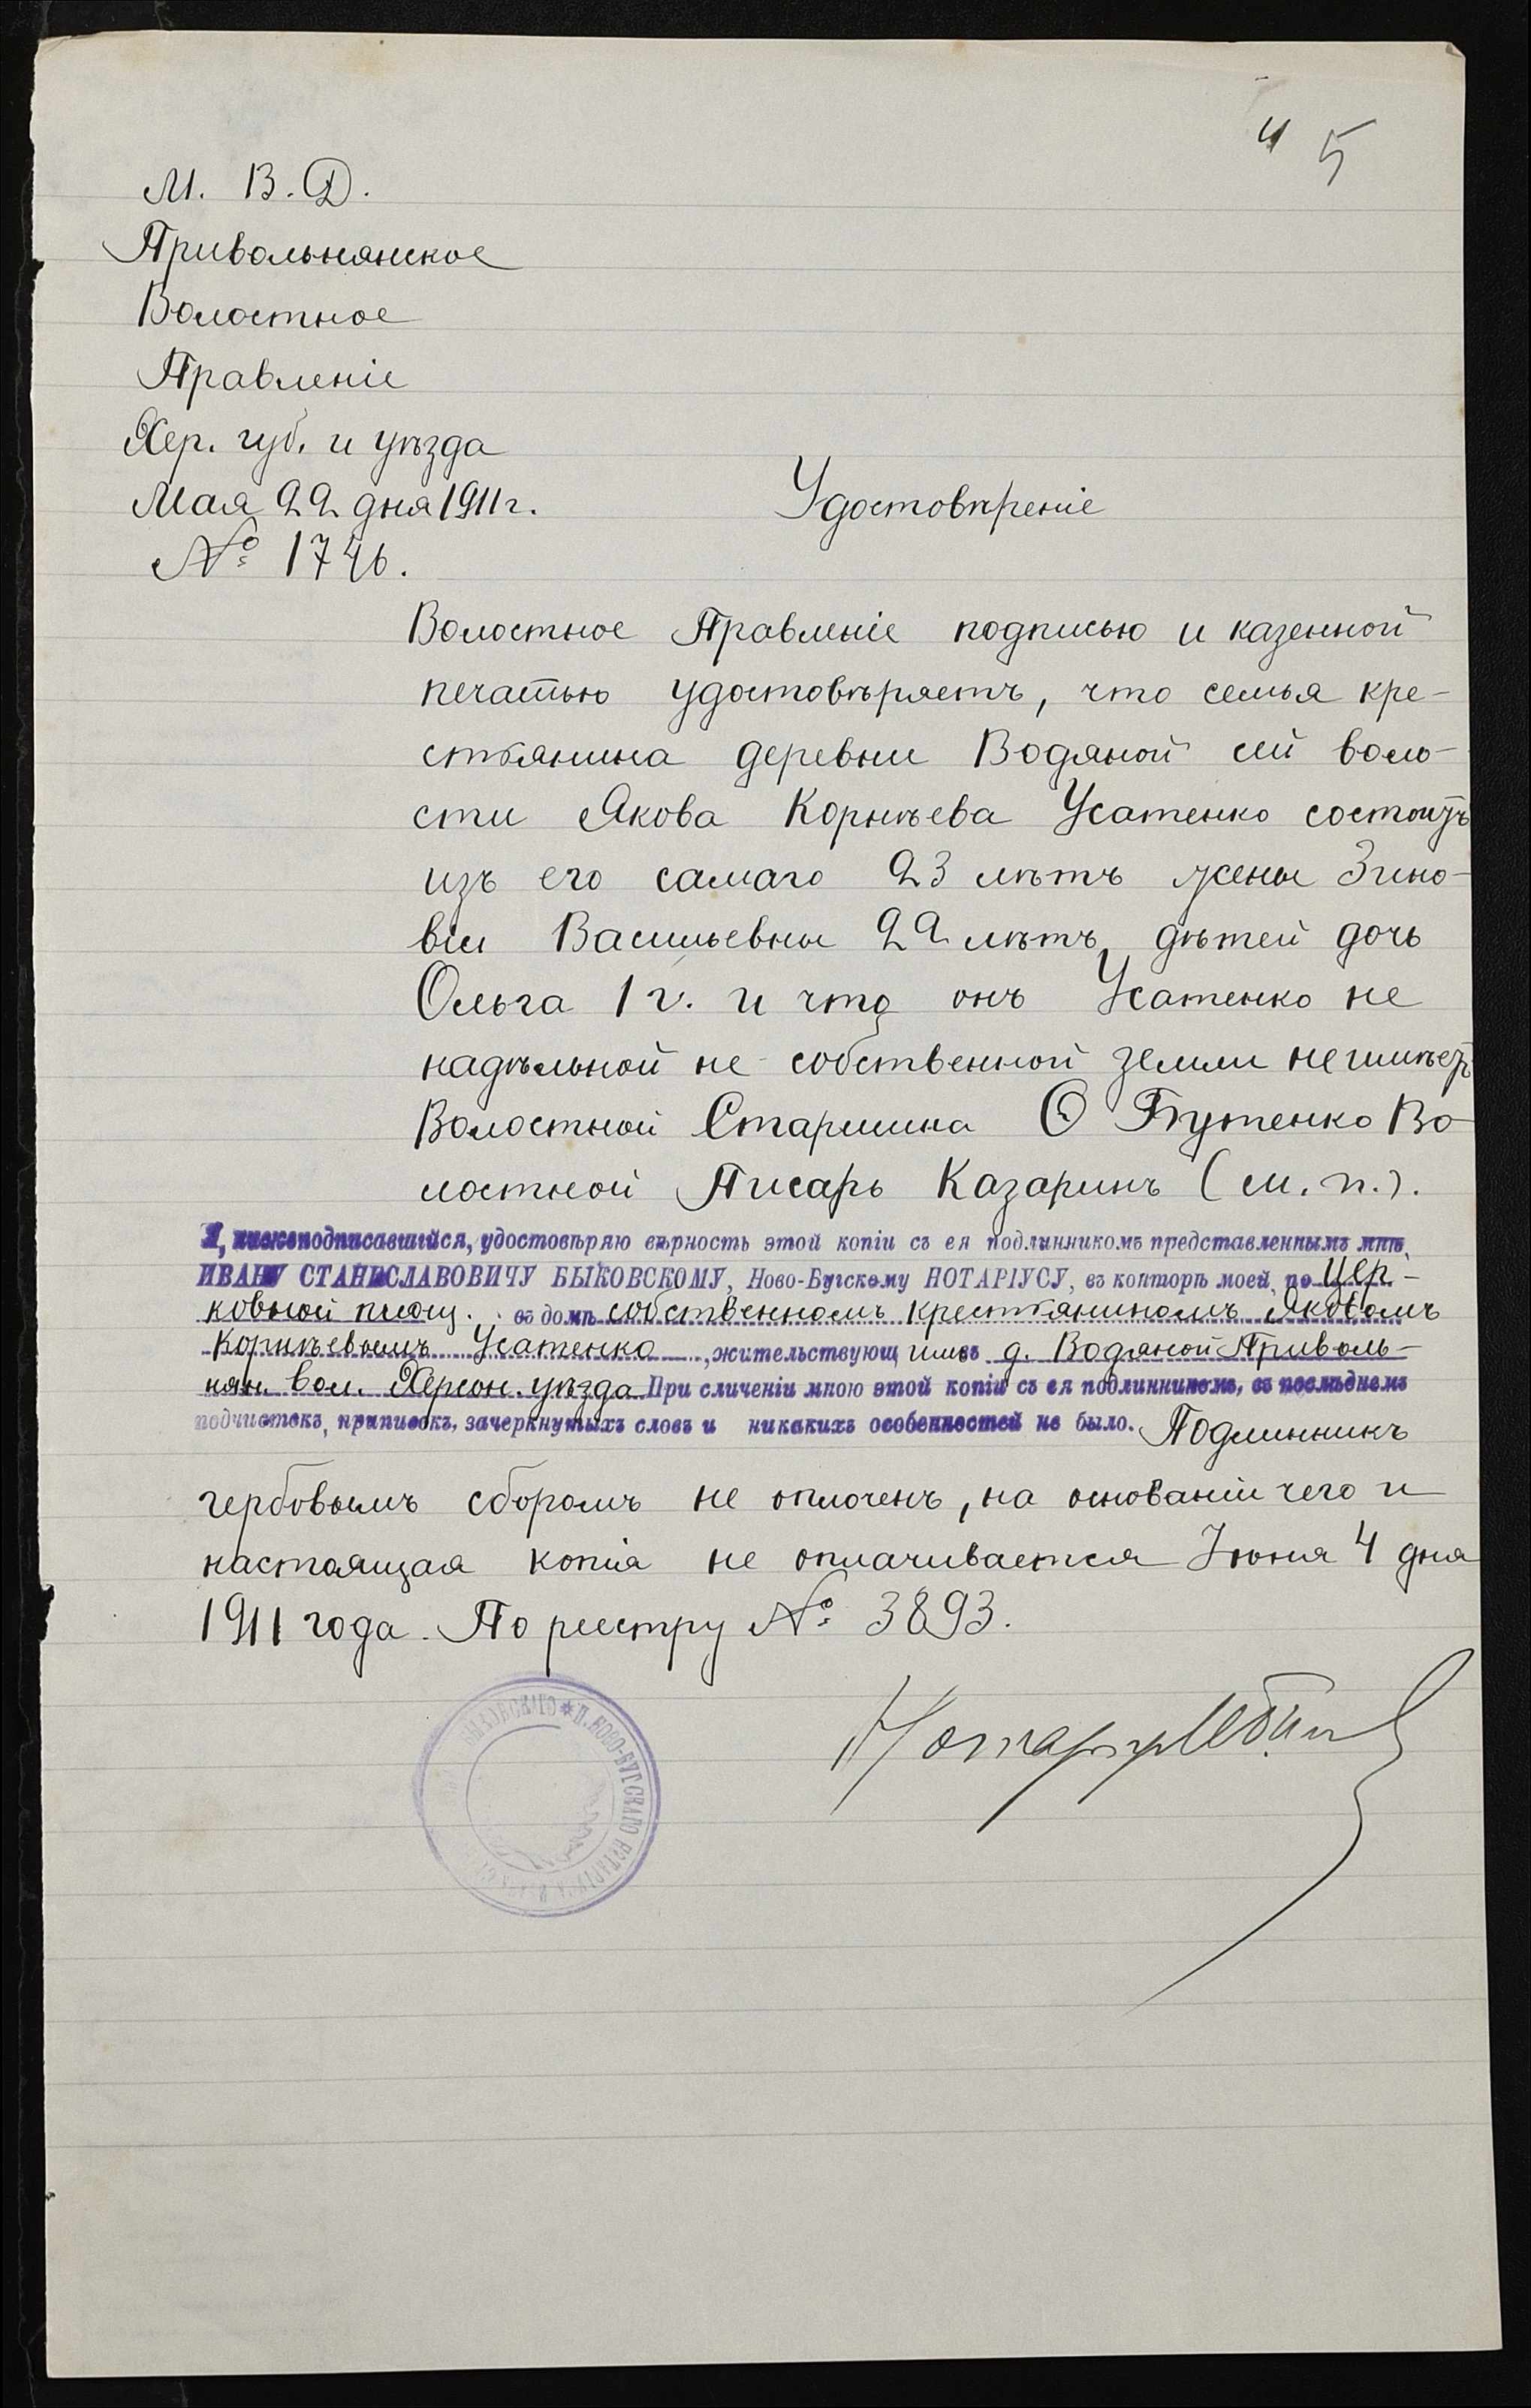 4 5
М. В. Д.
Привольнянское
Волостное
Правленіе
Хер. губ. и уѣзда
Мая 22 дня 1911 г.
Удостовѣреніе
№ 1746.
Волостное Правленіе подписью и казенной
печатью удостовѣряетъ, что семья кре-
стьянина деревни Водяной сей воло-
сти Якова Корнѣева Усатенко состоитъ
изъ его самаго 23 лѣтъ жены Зино-
віи Васильевны 22 лѣтъ, дѣтей дочь
Ольга 1 г. и что онъ Усатенко не
надѣльной не собственной земли не имѣетъ
Волостной Старшина О Бутенко Во-
лостной Писарь Казаринъ (м. п.).
Я, нижеподписавшійся, удостовѣряю вѣрность этой копіи съ ея подлинникомъ представленнымъ мнѣ,
ИВАНУ СТАНИСЛАВОВИЧУ БЫКОВСКОМУ, Ново-Бугскому НОТАРІУСУ, въ конторѣ моей, по Цер-
ковной площ. въ домѣ собственномъ крестьяниномъ Яковомъ
Корнѣевымъ Усатенко, жительствующимъ въ д. Водяной Приволь-
нян. вол. Херсон. уѣзда При сличеніи мною этой копіи съ ея подлинникомъ, въ послѣднемъ
подчистокъ, приписокъ, зачеркнутыхъ словъ и никакихъ особенностей не было. Подлинникъ
гербовымъ сборомъ не оплоченъ, на основаніи чего и
настоящая копія не оплачивается Іюня 4 дня
1911 года. По реестру № 3893.
Нотаріусъ
Н.-НОВО-БУГСКАГО НОТАРІУСА